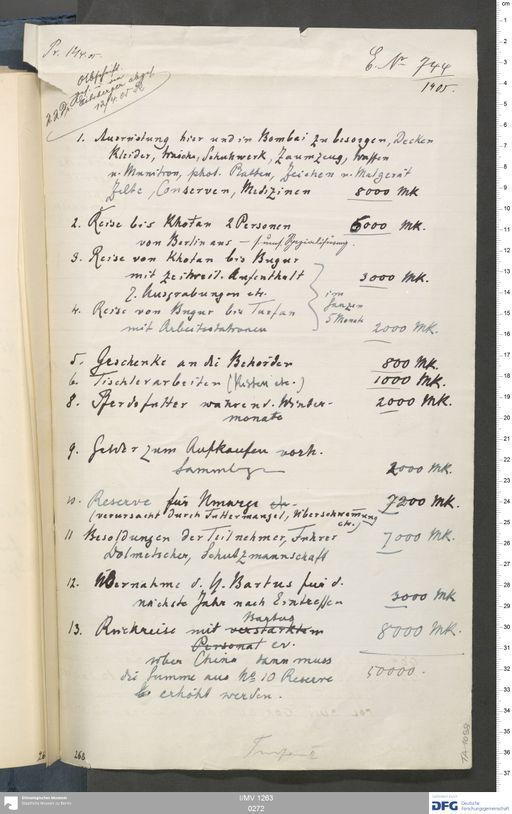 Pr. 17/4. 05.
E. Nr 744
1905.
1. Ausrüstung hier und in Bombai zu besorgen, Decken
Kleider, Wäsche, Schuhwerk, Zaumzeug, Waffen
u. Munition, phot. Platten, Zeichen u. Malgerät
Zelte, Conserven, Medizinen 8000 Mk
2. Reise bis Khotan 2 Personen 6000 Mk.
von Berlin aus –
3. Reise von Khotan bis Bugur
mit zeitweil. Aufenthalt 3000 Mk.
z. Ausgrabungen etc.
im
Ganzen
5 Monate
4. Reise von Bugur bis Turfan
mit Arbeitsstationen 2000 Mk.
5. Geschenke an die Behörden 800 Mk.
6. Tischlerarbeiten (Kisten etc.) 1000 Mk.
8. Pferdefutter während. Winter- 2000 Mk.
monate
9. Gelder zum Aufkaufen vorh.
Sammlgn 2000 Mk.
10. Reserve für Umwege etc. 7200 Mk.
(verursacht durch Futtermangel, Überschwemmung
etc.)
11 Besoldungen der Teilnehmer, Führer 7000 Mk.
Dolmetscher, Schutzmannschaft
12. Übernahme d. H. Bartus für d.
nächste Jahr nach Eintreffen 3000 Mk
13. Rückreise mit verstärktem Bartus 8000 Mk.
Personal ev.
über China dann muss
die Summe aus No 10 Reserve 50000.
erhöht werden.
Turfan
TA 1088
268
I/MV 1263
0272
Ethnologisches Museum
Staatliche Museen zu Berlin
DFG Deutsche
Forschungsgemeinschaft